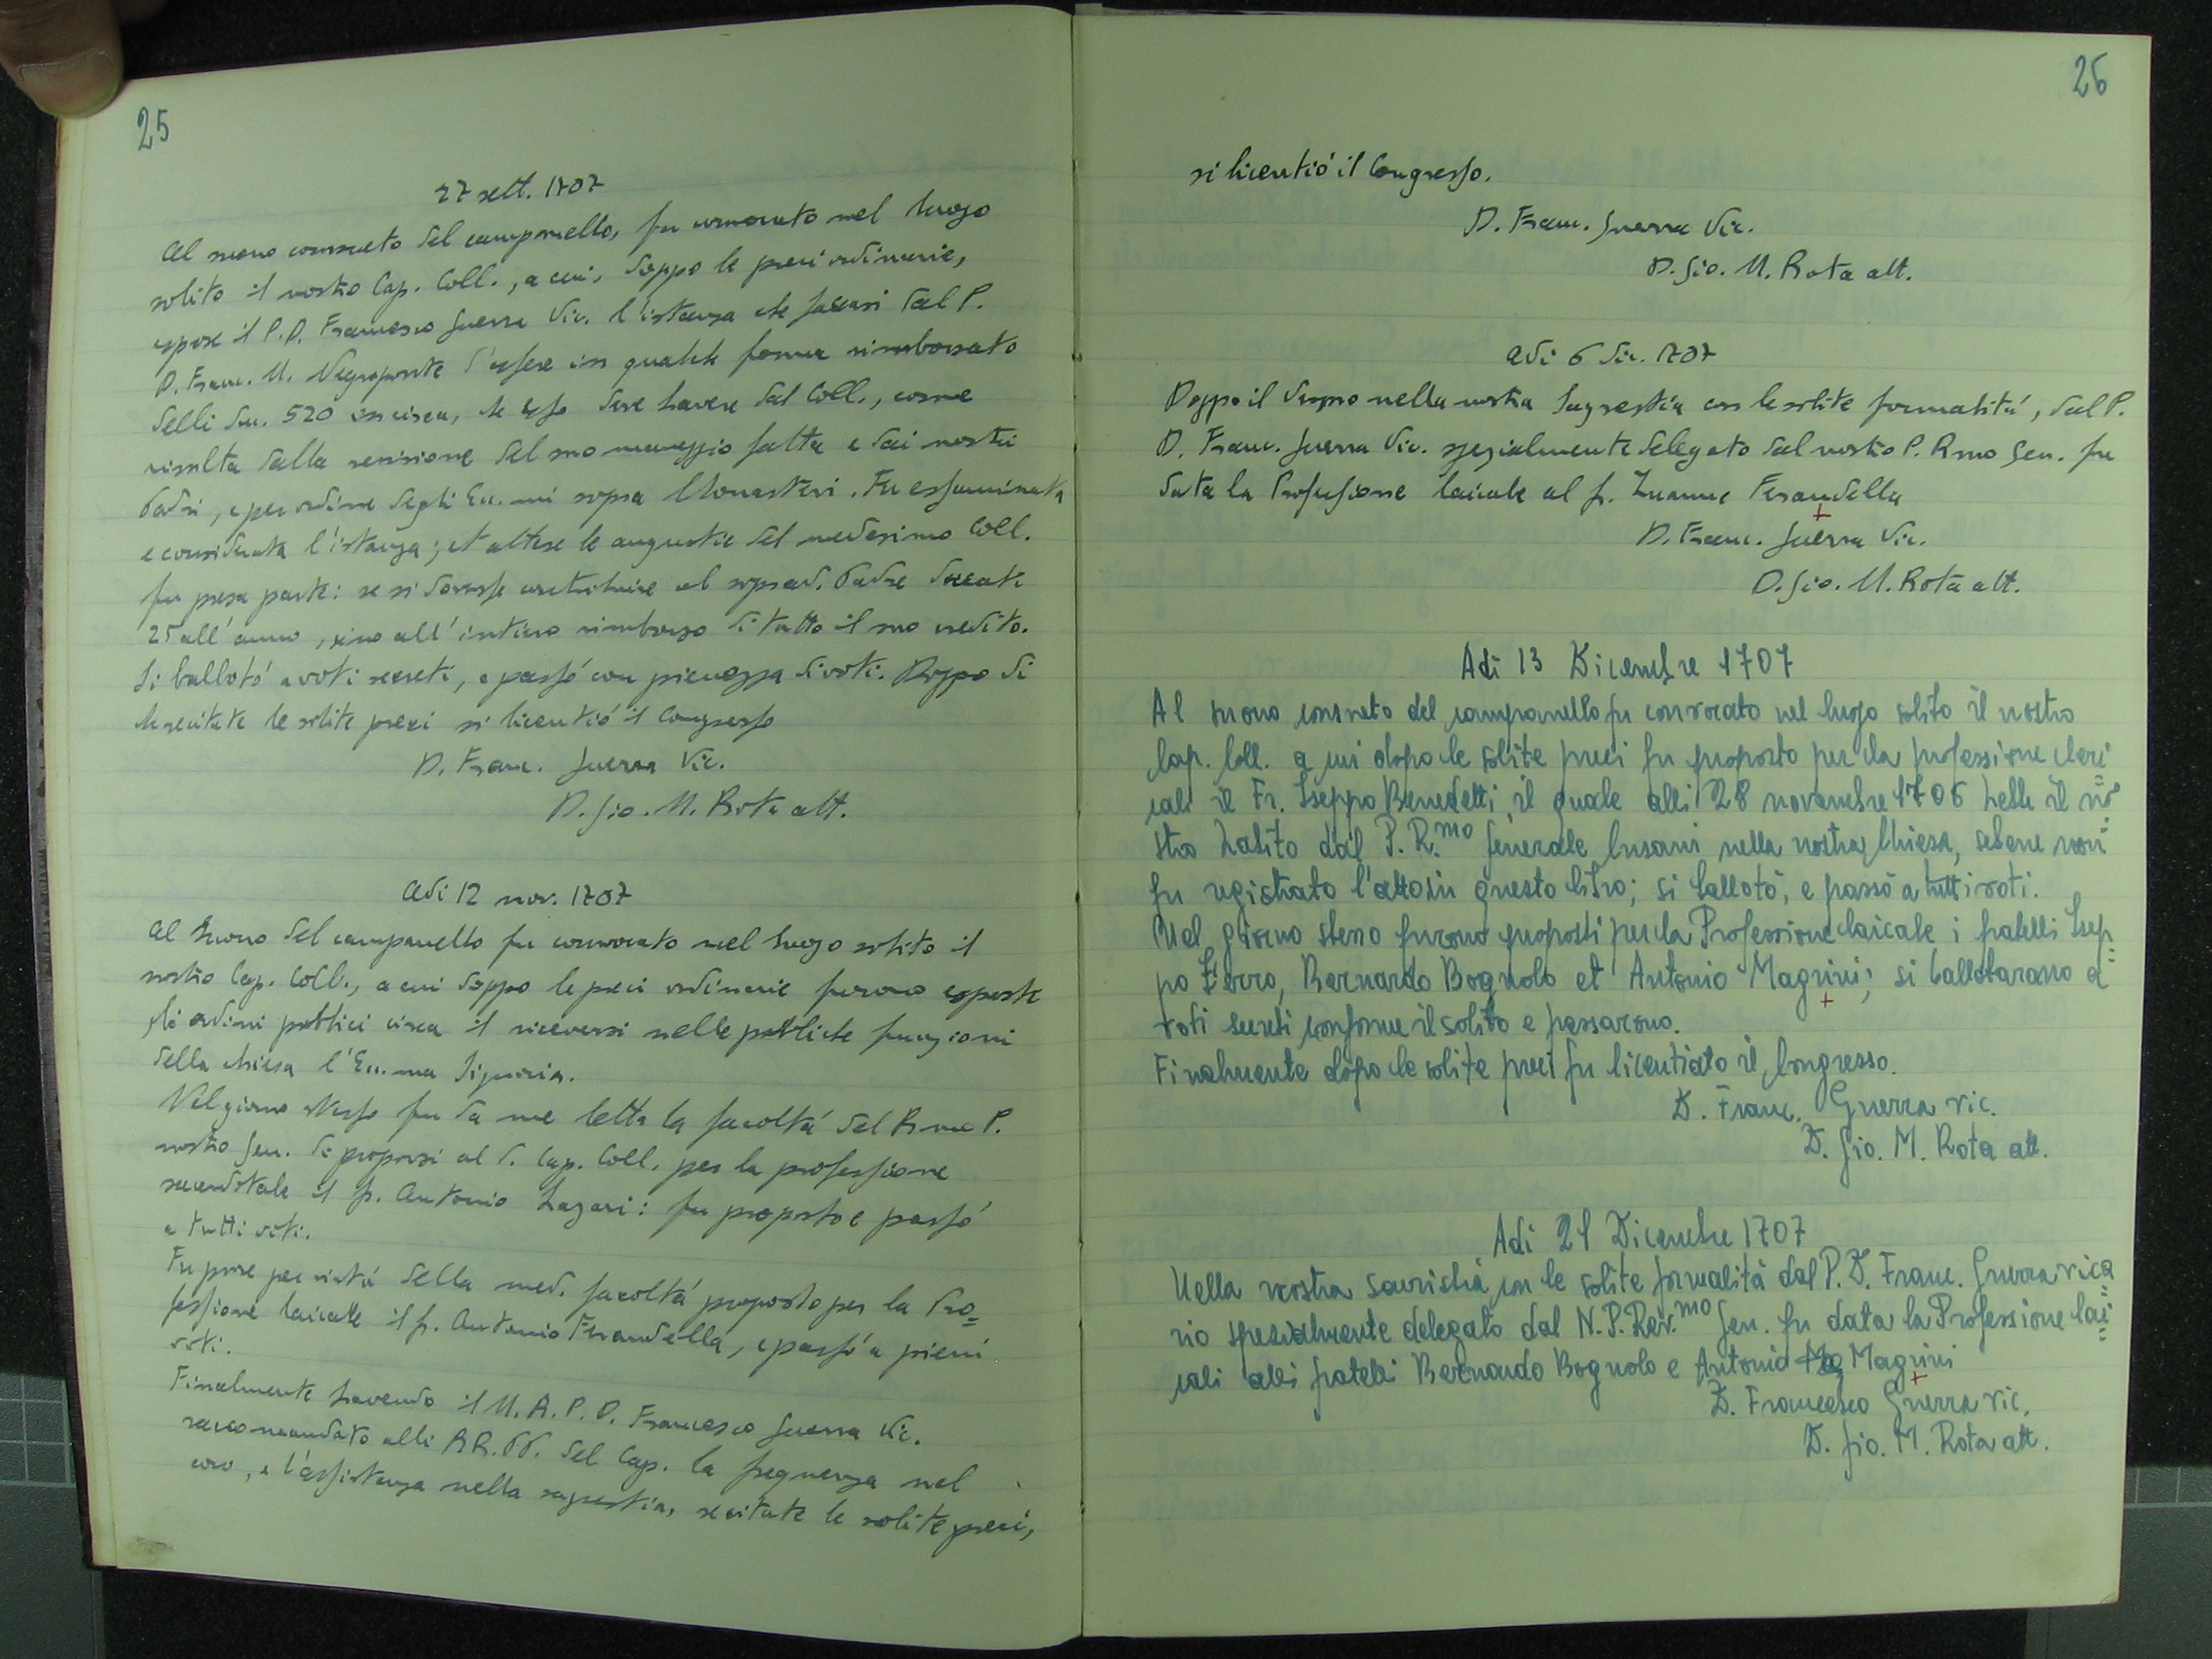 25
27 sett. 1707
Al suono consueto del campanello, fu convocato nel luogo
solito il nostro Cap. Coll., a cui, doppo le preci ordinarie,
espose il P.D. Francesco Guerra Vic. l'istanza che faceasi dal P.
D. Franc. M. Negroponte d'essere in qualche forma rimborsato
delli du. 520 in circa, che esso deve havere dal Coll., come
risulta dalla revisione del suo maneggio fatta e dai nostri
Padri, e per ordine degli Ecc.mi sopra Monasteri. Fu essaminata
e considerata l'istanza; et attese le angustie del medesimo Coll.
fu presa parte: se si dovesse contribuire al soprad. Padre ducati
25 all'anno, sino all'intiero rimborso di tutto il suo credito.
Si ballotò a voti secreti, e passò con pienezza di voti. Doppo di
che recitate le solite preci si licentiò il Congresso
D. Franc. Guerra Vic.
D. Gio. M. Rota att.
Adi 12 nov. 1707
Al suono del campanello fu convocato nel luogo solito il
nostro Cap. Coll., a cui doppo le preci ordinarie furono esposte
gli ordini publici circa il riceversi nelle publiche funzioni
della chiesa l'Ecc.ma Signoria.
Nel giorno stesso fu da me letta la facoltà del R.mo P.
nostro Gen. di proporsi al d. Cap. Coll. per la professione
sacerdotale il fr. Antonio Lazari: fu proposto e passò
a tutti voti.
Fu pure per virtù della med. facoltà proposto per la Pro=
fessione laicale il fr. Antonio Ferandella, e passò a pieni
voti.
Finalmente havendo il M. R. P. D. Francesco Guerra Vic.
raccomandato alli RR. PP. del Cap. la frequenza nel
coro, e l'assistenza nella sagrestia, recitate le solite preci,
26
si licentiò il Congresso.
D. Franc. Guerra Vic.
D. Gio. M. Rota att.
Adi 6 dic. 1707
Doppo il Vespro nella nostra Sagrestia con le solite formalità, dal P.
D. Franc. Guerra Vic. spezialmente delegato dal nostro P. R.mo Gen. fu
data la Professione laicale al fr. Zuanne Ferandella
D. Franc. Guerra Vic.
D. Gio. M. Rota att.
Adi 13 Dicembre 1707
Al suono consueto del campanello fu convocato nel luogo solito il nostro
Cap. Coll. a cui dopo le solite preci fu proposto per la professione cleri=
cale il Fr. Iseppo Benedetti, il quale alli 28 novembre 1706 hebbe il no=
stro habito dal P. R.mo Generale Cusani nella nostra Chiesa, sebene non
fu registrato l'atto in questo libro; si ballotò, e passò a tutti voti.
Nel giorno stesso furono proposti per la Professione laicale i fratelli Isep=
po Ferro, Bernardo Bognolo et Antonio Magnini; si ballotarono a
voti secreti conforme il solito e passarono.
Finalmente dopo le solite preci fu licentiato il Congresso.
D. Franc. Guerra vic.
D. Gio. M. Rota att.
Adi 21 Dicembre 1707
Nella nostra Sacristia con le solite formalità dal P. D. Franc. Guerra vica=
rio spezialmente delegato dal N. P. Rev.mo Gen. fu data la Professione lai=
cale alli fratelli Bernardo Bognolo e Antonio Ma Magnini
D. Francesco Guerra vic.
D. Gio. M. Rota att.